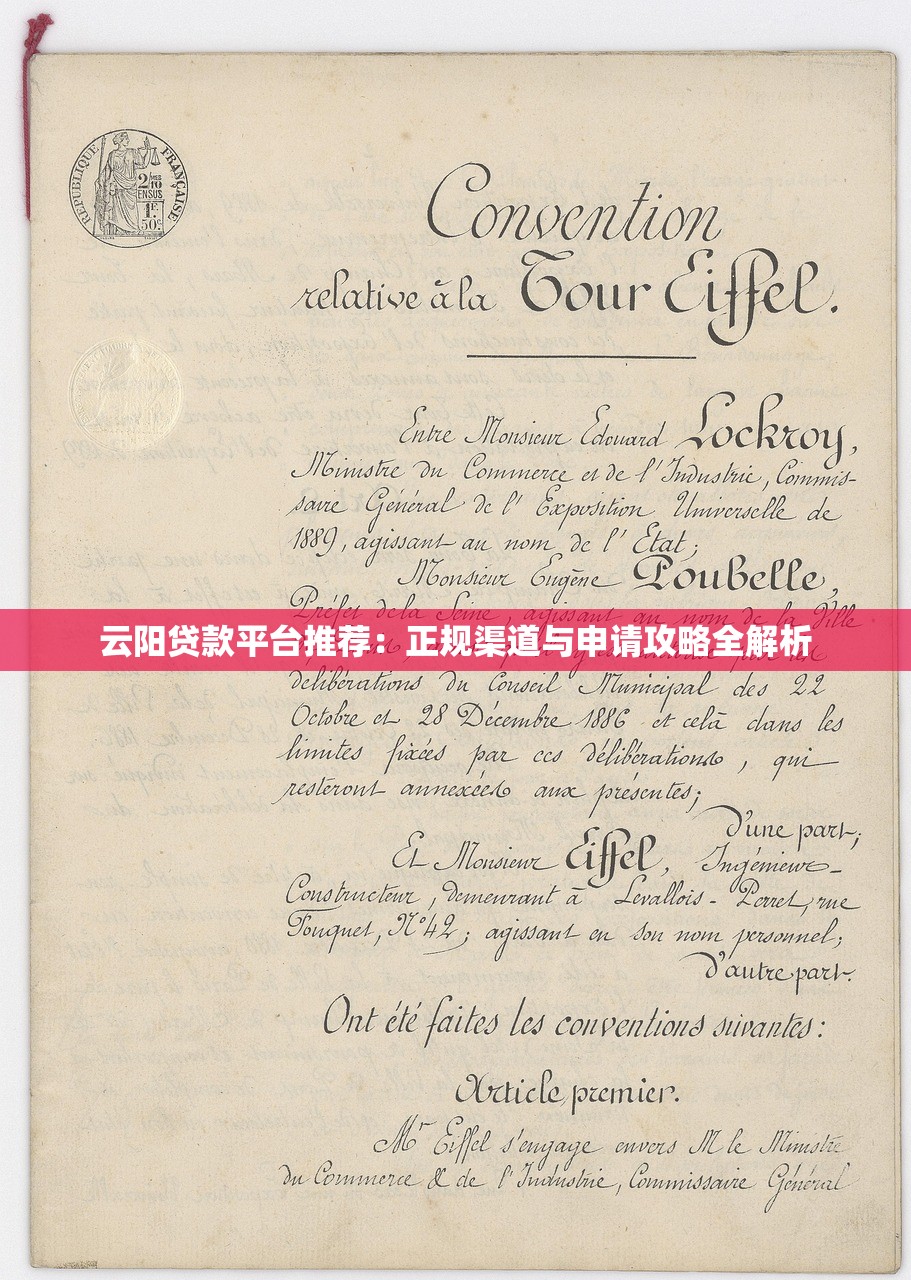 RÉPUBLIQUE FRANÇAISE
2/10
EN SUS
1F.
50c
Convention
relative à la Tour Eiffel.
Entre Monsieur Edouard Lockroy,
Ministre du Commerce et de l'Industrie, Commis-
saire Général de l'Exposition Universelle de
1889, agissant au nom de l'Etat;
Monsieur Eugène Poubelle,
Préfet de la Seine, agissant au nom de la Ville
云阳贷款平台推荐：正规渠道与申请攻略全解析
délibérations du Conseil Municipal des 22
Octobre et 28 Décembre 1886 et celà dans les
limites fixées par ces délibérations, qui
resteront annexées aux présentes;
d'une part;
Et Monsieur Eiffel, Ingénieur-
Constructeur, demeurant à Levallois-Perret, rue
Fouquet, N° 42; agissant en son nom personnel;
d'autre part.
Ont été faites les conventions suivantes:
Article premier.
Mr Eiffel s'engage envers M le Ministre
du Commerce & de l'Industrie, Commissaire Général